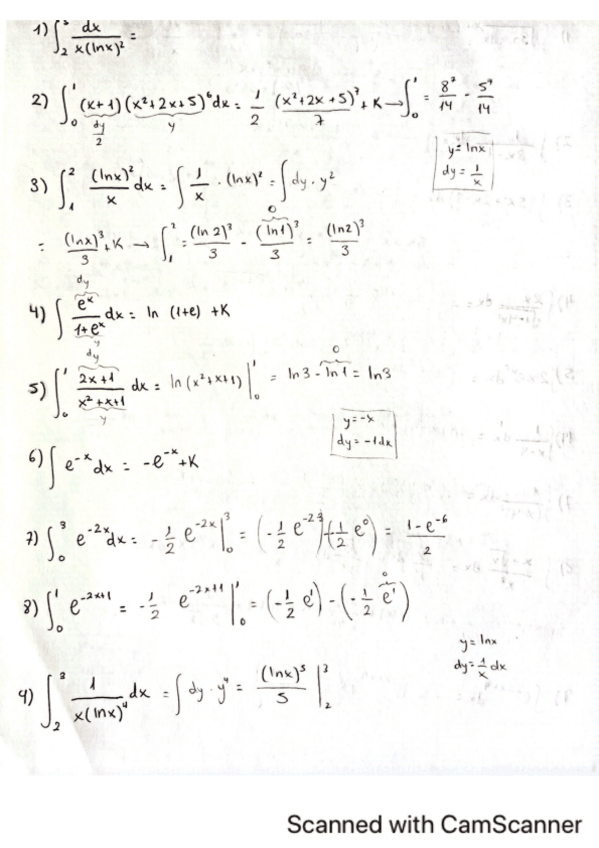 1) ∫₂³ dx / x(lnx)² =
2) ∫₀¹ (x+1)(x²+2x+5)⁶dx = 1/2 (x²+2x+5)⁷/7 + K → ∫₀¹ = 8⁷/14 - 5⁷/14
dy/2 y
y = lnx
dy = 1/x
3) ∫₁² (lnx)²/x dx = ∫ 1/x · (lnx)² = ∫ dy · y²
0
= (lnx)³/3 + K → ∫₁² = (ln 2)³/3 - (ln 1)³/3 = (ln2)³/3
dy
4) ∫ eˣ/1+eˣ dx = ln (1+e) + K
y
dy 0
5) ∫₀¹ 2x+1/x²+x+1 dx = ln (x²+x+1) |₀¹ = ln 3 - ln 1 = ln3
y
y = -x
dy = -1dx
6) ∫ e⁻ˣ dx = -e⁻ˣ + K
7) ∫₀³ e⁻²ˣ dx = -1/2 e⁻²ˣ |₀³ = (-1/2 e^-2·3) - (-1/2 e⁰) = 1-e⁻⁶/2
0
8) ∫₀¹ e⁻²ˣ⁺¹ = -1/2 e⁻²ˣ⁺¹ |₀¹ = (-1/2 e¹) - (-1/2 e¹)
y = lnx
dy = 1/x dx
9) ∫₂³ 1/x(lnx)⁴ dx = ∫ dy · y⁴ = (lnx)⁵/5 |₂³
Scanned with CamScanner